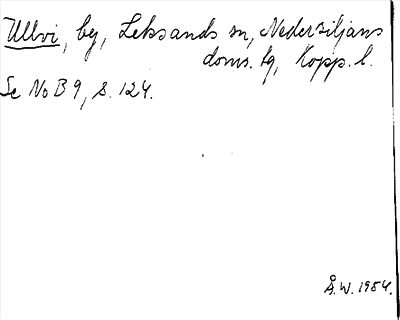 Ullvi, by, Leksands sn, Nedersiljans
doms. tg, Kopp. l.
Se No B 9, s. 124.
Å. W. 1984.